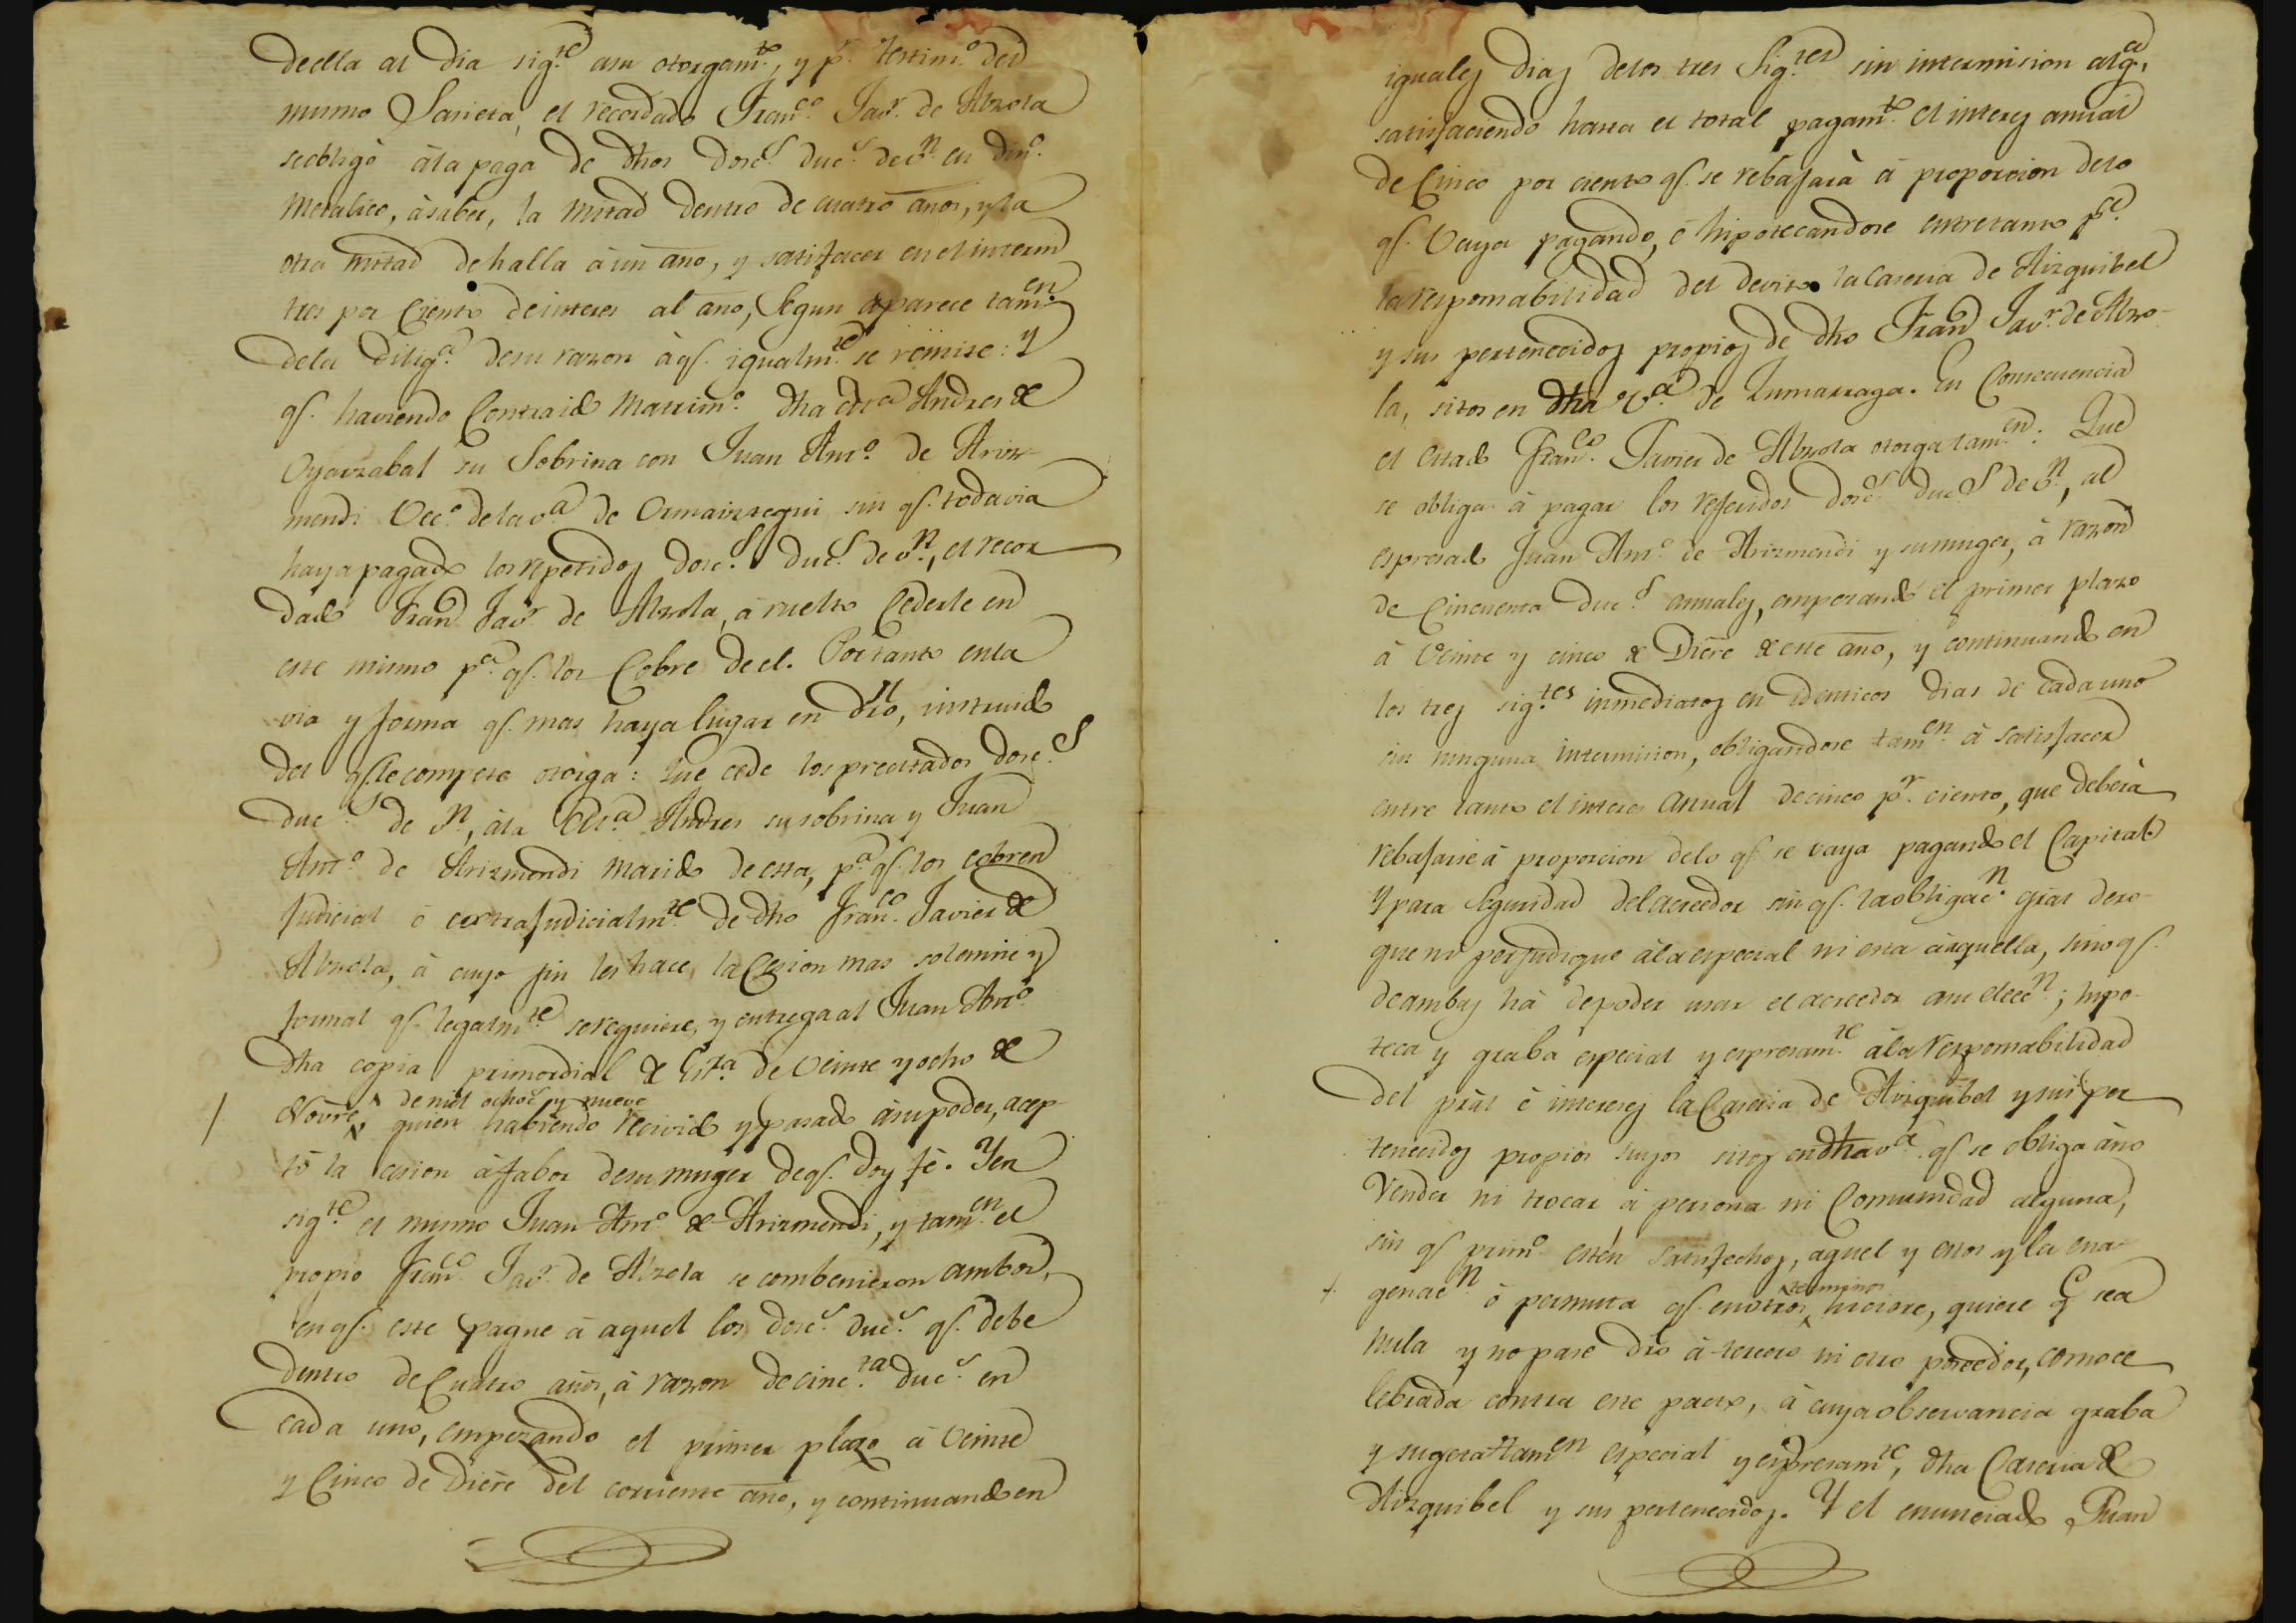 deella al Dia sig.te asu otorgam.to, y p.r testim.o del
mismo Sarieta, el recordado Fran.co Jav.r de Alzola
seobligò àla paga de dhos dosc.s duc.s de v.n en din.o
Metalico, àsaber, la mitad dentro de cuatro años, y la
otra mitad de halla à un año, y satisfacer en el interin
tres por Ciento deinteres al año, Segun aparece tam.en
dela dilig.a desu razon à q.e igualm.te se remite: Y
q.e haviendo Contraido Matrim.o dha Andres de
Oyarzabal su Sobrina con Juan Ant.o de Ariz-
mendi Vec.o dela v.a de Ormaiztegui sin q.e todavia
haya pagado los repetidos dosc.s duc.s de v.n, el recor
dado Fran.co Jav.r de Alzola, à vuelto Cederle en
este mismo p.a q.e los Cobre de el. Portanto enla
via y forma q.e mas haya lugar en dro, instruido
del q.e le compete otorga: Que cede los precitados dosc.s
duc.s de v.n, àla Andres su sobrina y Juan
Ant.o de Arizmendi marido de esta, p.a q.e los cobren
Judicial ò extraJudicialm.te de dho Fran.co Javier de
Alzola, à cuyo fin les hace, la Cesion mas solemne y
formal q.e legalm.te serequiere, y entrega al Juan Ant.o
dha copia primordial de Es.ra de Veinte y ocho de
de mil ochoc.s y nueve
Novre, quien habiendo recivido y pasado àsu poder, acep
tò la cesion àfabor desu muger deq.e doy fè. Y en
sig.te el mismo Juan Ant.o de Arizmendi, y tam.en el
propio Fran.co Jav.r de Alzola se combenieron ambos,
en q.e este pague à aquel los dosc.s duc.s q.e debe
dentro de Cuatro años, à razon de cinc.ta duc.s en
cada uno, empezando el primer plazo à Veinte
y Cinco de Dicre del corriente año, y continuando en
iguales dias delos tres Sig.tes sin intermision alg.a,
satisfaciendo hasta el total pagam.to el interes anual
de Cinco por ciento q.e se rebaJarà à proporcion delo
q.e Vaya pagando, è hipotecandose entretanto p.a
la responsabilidad del devito la Caseria de Aizquibel
y sus pertenecidos propios de dho Fran.co Jav.r de Alzo-
la, sitos en dha v.a de Zumarraga. En Consecuencia
el citado Fran.co Javier de Alzola otorga tam.en: Que
se obliga à pagar los referidos dosc.s duc.s de v.n, al
espresado Juan Ant.o de Arizmendi y su muger, à razon
de Cincuenta duc.s anuales, empezando el primer plazo
à Veinte y cinco de Dicre de este año, y continuando en
los tres sig.tes inmediatos en identicos dias de cada uno
sin ninguna intermision, obligandose tam.en à satisfacer
entre tanto el interes anual de cinco p.r ciento, que deberà
rebaJarse à proporcion delo q.e se vaya pagando el Capital
Y para Seguridad del acreedor sin q.e la obligac.n gral dero
gue ni perJudique àla especial ni esta àaquella, sino q.e
de ambas hà depoder usar el acreedor asu elecc.n; hipo-
teca y graba especial y espresam.te àla responsabilidad
del pral è intereses la Caseria de Aizquibel y sus per
tenecidos propios suyos sitos en dha v.a q.e se obliga àno
Vender ni trocar à persona ni Comunidad alguna,
sin q.e prim.o estén satisfechos, aquel y estos y la ena-
terminos
genac.n ò permuta q.e en otros hiciere, quiere q.e sea
nula y no pase dro à tercero ni otro poseedor, como ce
lebrada contra este pacto, à cuya observancia graba
y sugeta tam.en especial y espresam.te, dha Caseria de
Aizquibel y sus pertenecidos. Y el enunciado Juan